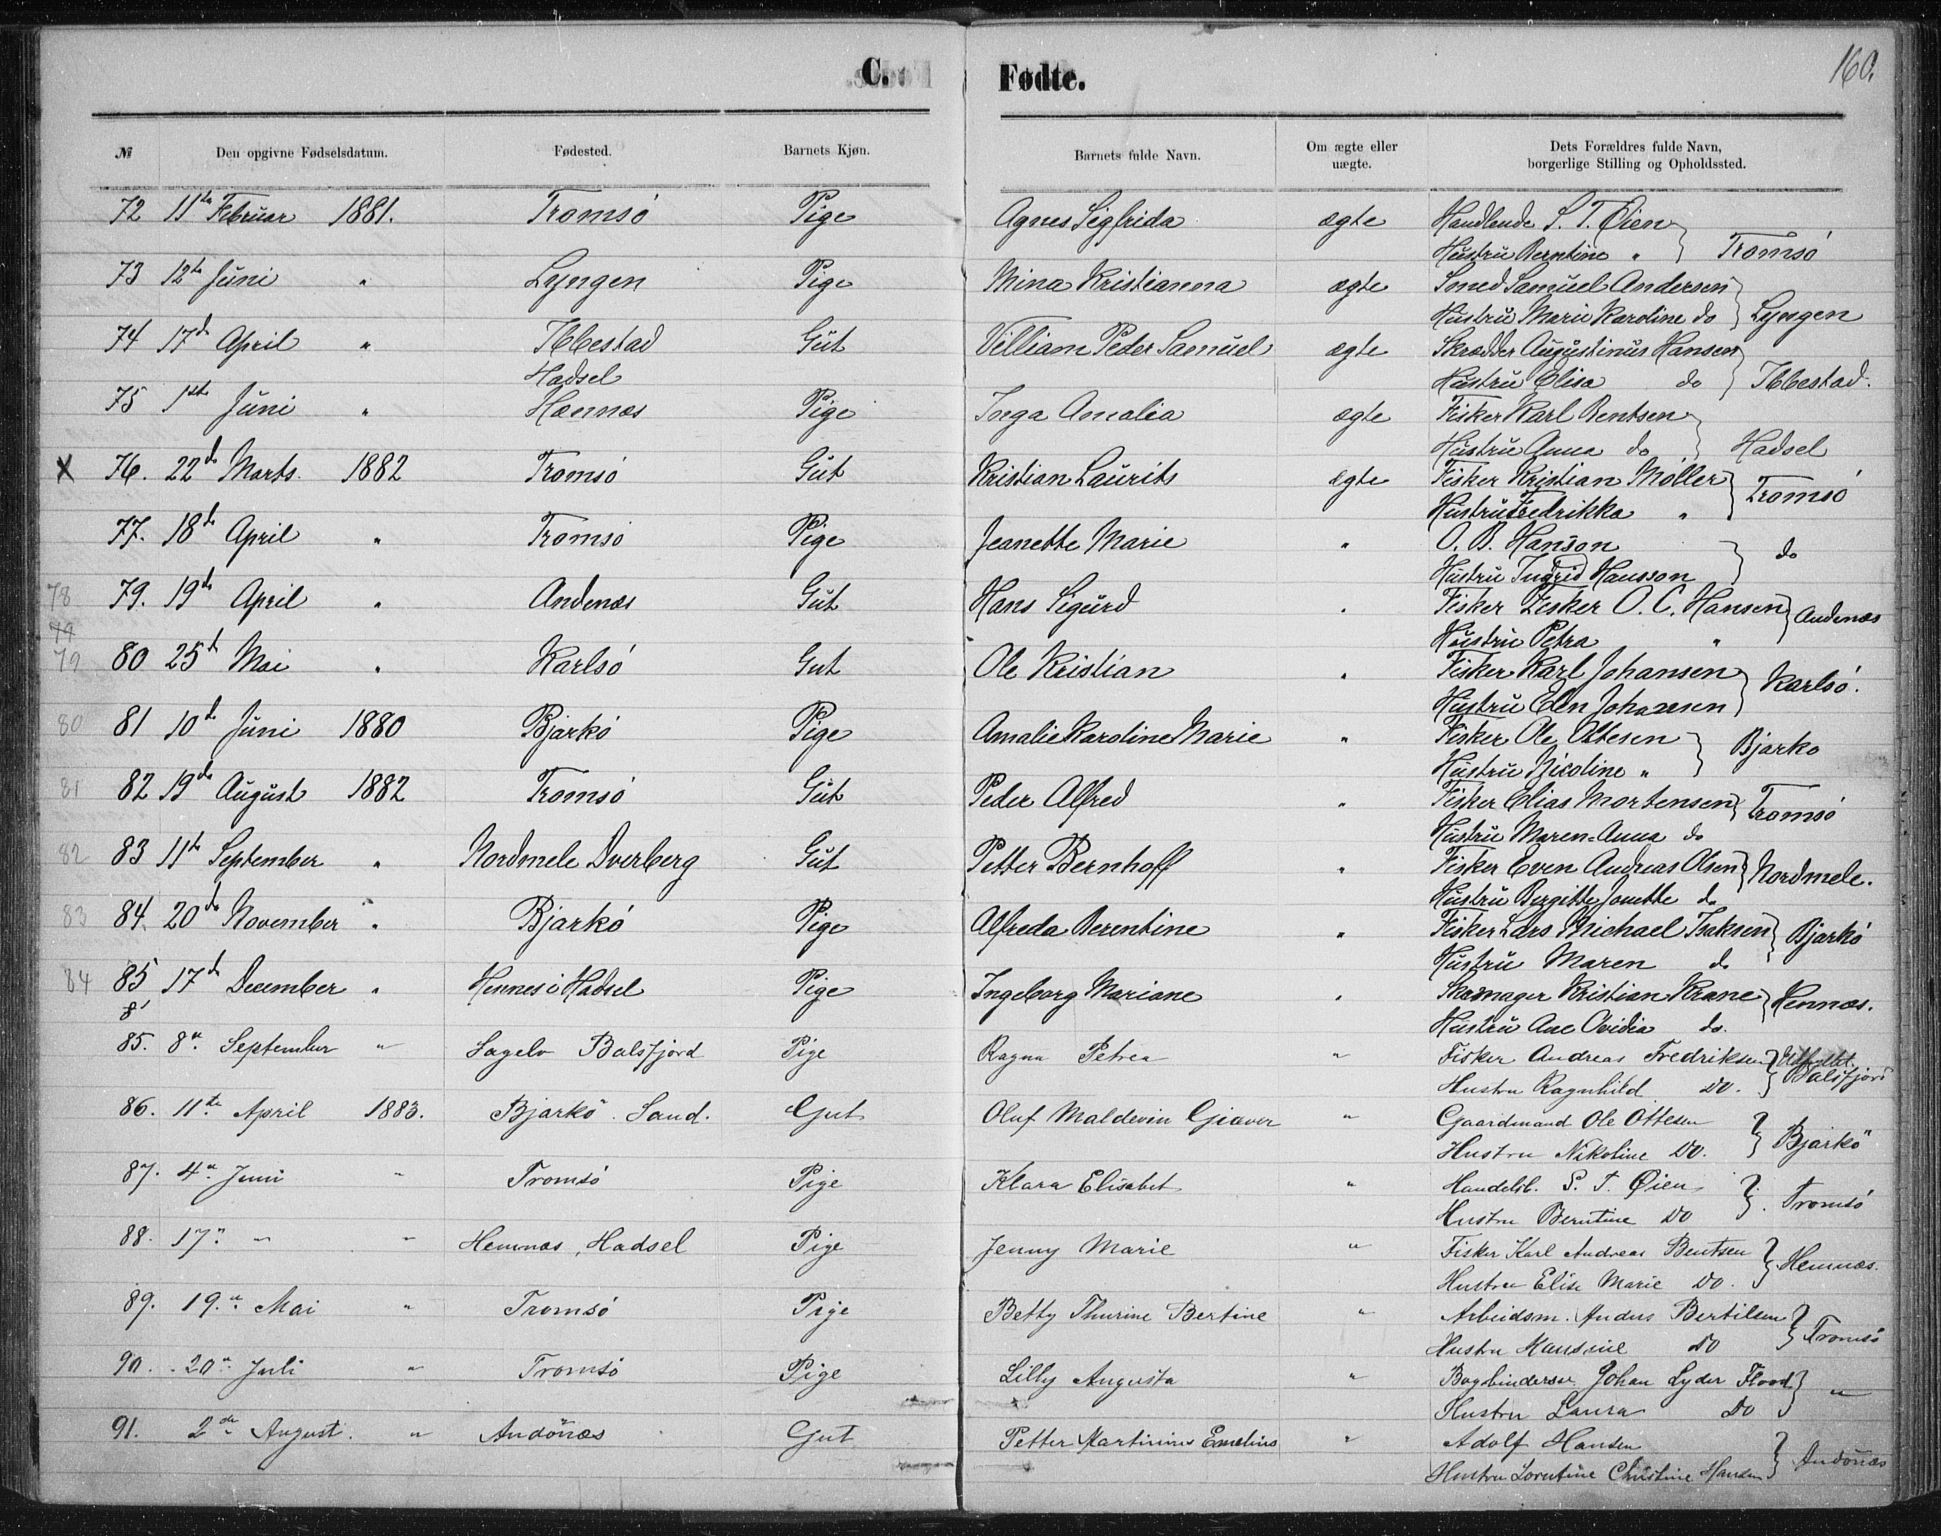 160.
C. Fødte.
№ Den opgivne Fødselsdatum. Fødested. Barnets Kjøn. Barnets fulde Navn. Om ægte eller uægte. Dets Forældres fulde Navn, borgerlige Stilling og Opholdssted.
72 11te Februar 1881. Tromsö Pige Agnes Sigfrida ægte Handlende S. T. Öien
Hustru Berntine " Tromsö
73 12te Juni " Lyngen Pige Mina Kristianna ægte Smed Samuel Andersen
Hustru Marie Karoline do Lyngen
74 17de April " Ibbestad Gut Villiam Peder Samuel ægte Skrædder Augustinus Hansen
Hustru Elisa do Ibbestad.
Hadsel
75 1ste Juni " Hænnes Pige Inga Amalia ægte Fisker Karl Bentsen
Hustru Anna do Hadsel
X 76. 22de Marts. 1882 Tromsö Gut Kristian Laurits ægte Fisker Kristian Möller
Hustru Fredrikka " Tromsö
77. 18de April " Tromsö Pige Jeanette Marie " O. B. Hanson
Hustru Ingrid Hansson do
78 79. 19de April " Andenæs Gut Hans Sigurd " Fisker Fisker O. C. Hansen
Hustru Petra " Andenæs
79
79 80 25de Mai " Karlsö Gut Ole Kristian " Fisker Karl Johansen
Hustru Elen Johansen Karlsö.
80 81 10de Juni 1880 Bjarkö Pige Amalie Karoline Marie " Fisker Ole Ottesen
Hustru Nicoline " Bjarko
81 82 19de August 1882 Tromsö Gut Peder Alfred " Fisker Elias Mortensen
Hustru Maren=Anna do Tromsö
82 83 11te September " Nordmele Dverberg Gut Petter Bernhoff " Fisker Even Andreas Olsen
Hustru Birgitte Jonette do Nordmele.
83 84. 20de November " Bjarkö Pige Alfreda Berentine " Fisker Lars Michael Isaksen
Hustru Maren do Bjarkö
84 85 17de December " Hennes i Hadsel Pige Ingeborg Mariane " Skomager Kristian Krane
Hustru Ane Ovidia do. Hennæs.
8
85. 8de September " Sagelv Balsfjord Pige Ragna Petrea " Fisker Andreas Fredriksen
Hustru Ragnhild Do. Udflyttet. Balsfjord
86. 11te April 1883. Bjarkö. Sand. Gut Oluf Maldevin Giæver " Gaardmand Ole Ottesen
Hustru Nikoline Do. Bjarkö
87. 4de Juni " Tromsö Pige Klara Elisabet " Handelsb. S. T. Øien
Hustru Berntine Do Tromsö
88. 17de " " Hennæs, Hadsel Pige Jenny Marie " Fisker Karl Andreas Bentsen
Hustru Elise Marie Do. Hennæs.
89. 19de Mai " Tromsö Pige Betty Thurine Bertine " Arbeidsm. Anders Bertilsen
Hustru Hansine Do Tromsö
90. 20de Juli " Tromsö Pige Lilly Augusta " Bogbinderse. Johan Lyder Flood
Hustru Laura Do "
91. 2de August. " Andönæs Gut Petter Martinius Emelius " Adolf Hansen
Hustru Lorntine Christine Hansen Andönæs